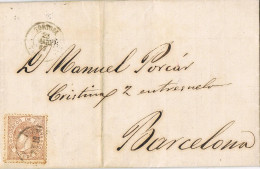 D. Manuel Porcár
Cristina 2 entresuelo
Barcelona